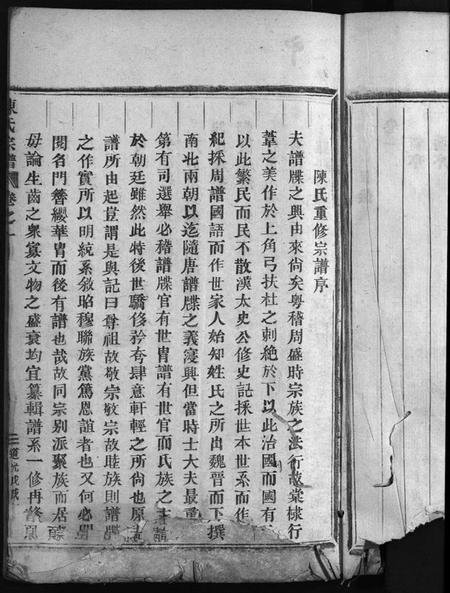 陳氏重修宗譜序
夫譜牒之興由來尙矣粵稽周盛時宗族之法行故棠棣行
葦之美作於上角弓扶杜之刺絶於下以此治國而國有
以此繁民而民不散漢太史公修史記採世本世系而作
紀採周譜國語而作世家人始知姓氏之所出魏晉而下撰
南北兩朝以迄隨唐譜牒之義寖興但當時士大夫最重
第有司選舉必稽譜牒官有世冑譜有世官而氏族之
於朝廷雖然此特後世驕修矜夸肆意軒輊之所尙也原
譜所由起豈謂是與記曰尊祖故敬宗敬宗故睦族則譜牒
之作實所以明統系敘昭穆聯族黨篤恩誼者也又何必
閥名門簪纓華冑而後有譜也哉故同宗別派聚族而居
毋論生齒之衆寡文物之盛衰均宜纂輯譜系一修再修
陳氏宗譜 卷之一
一 道光戊